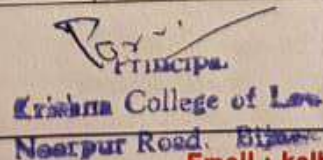 Principal
Krishna College of Law
Noorpur Road, Bijnor
Email :